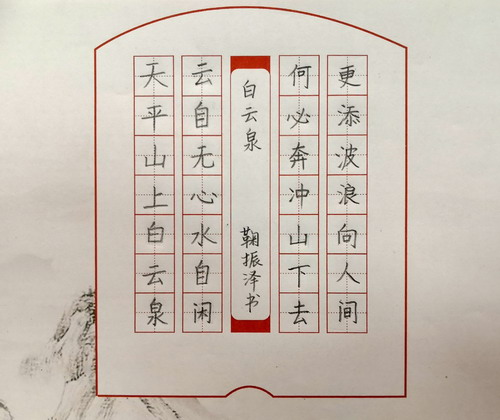 天平山上白云泉
云自无心水自闲
白云泉
鞠振泽书
何必奔冲山下去
更添波浪向人间